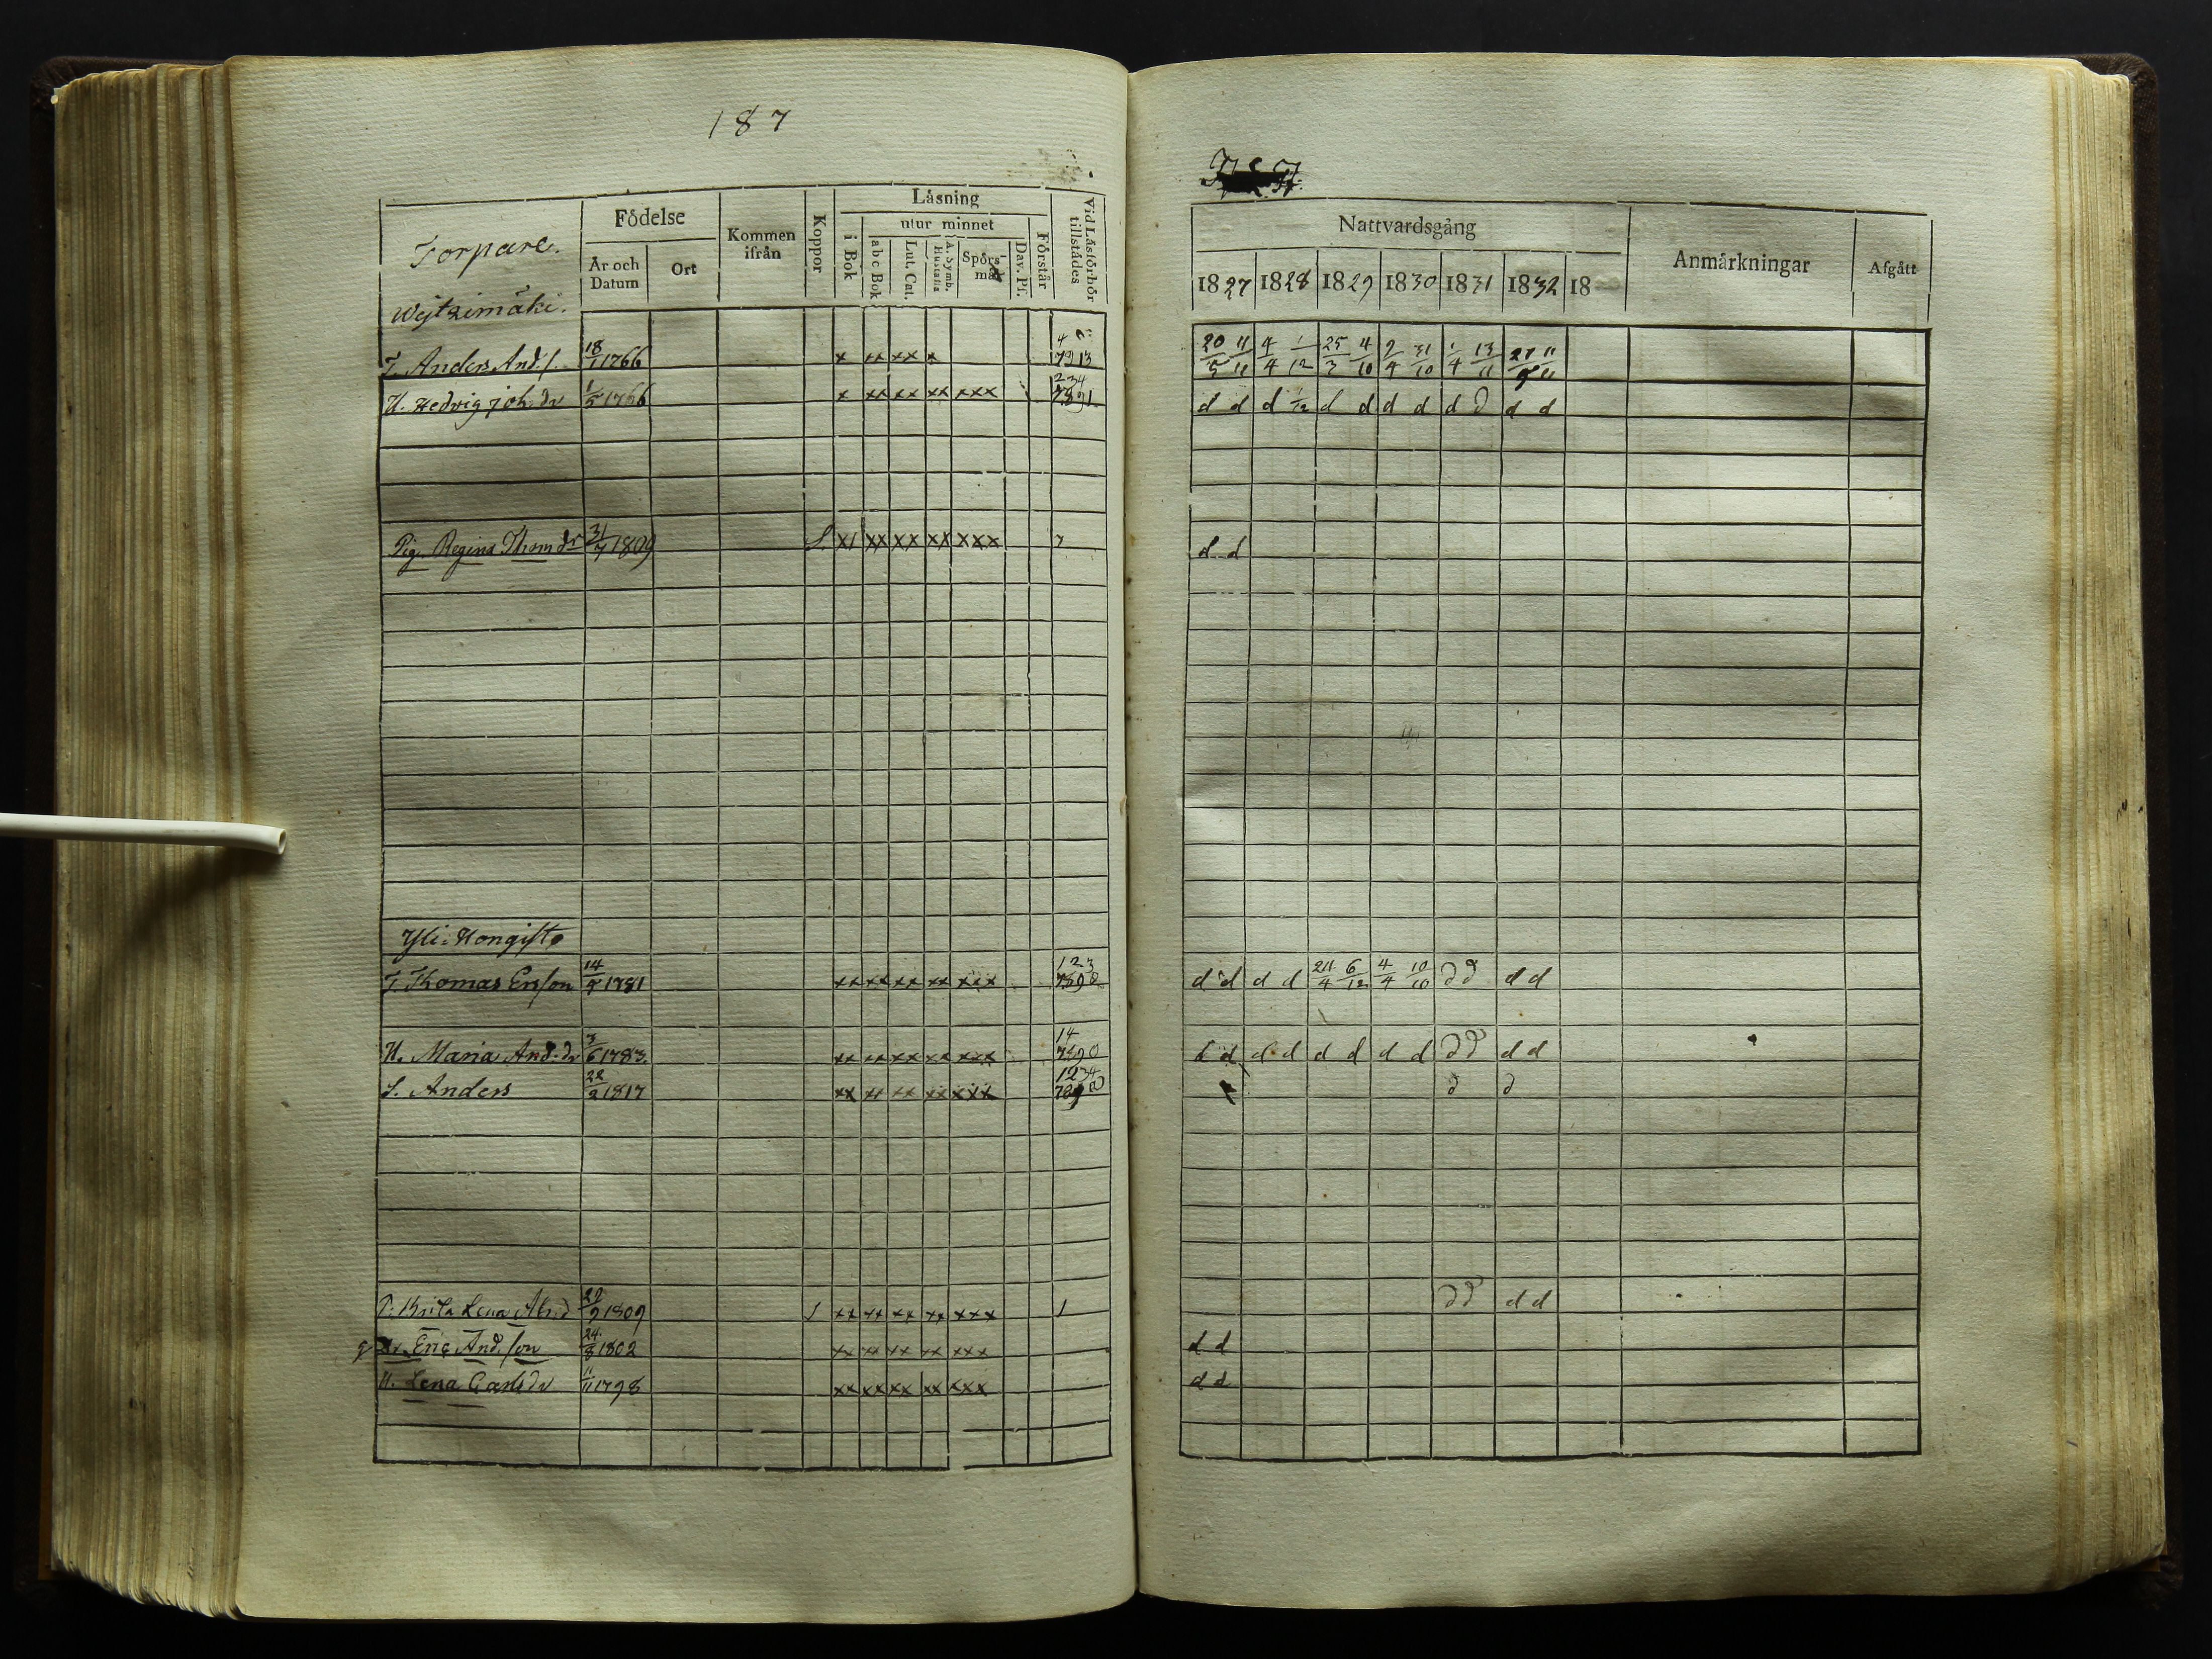 187
Torpare.
Wejtzimäki.
Födelse
År och Datum
Ort
Kommen ifrån
Koppor
Läsning
i Bok
utur minnet
abc Bok
Lut. Cat.
A. Symb. Hustafla
Spörsmål
Dav. Ps.
Förstår
Vid Läsförhör tillstädes
T. Anders And.s. 18/1 1766 x xx xx x
H. Hedvig Joh.dr 1/5 1766 x xx xx xx xxx
Pig. Regina Thom dr 31/7 1809 S. x1 xx xx xx xxx 7
Yli-Hongisto
T. Thomas Erson 14/9 1781 xx xx xx xx xxx
H. Maria And.dr 3/6 1783. xx xx xx xx xxx
S. Anders 22/2 1817 xx xx xx xx xxx
P. Brita Lena 29/9 1809 1 xx xx xx xx xxx 1
Eric And.son 24/8 1802 xx xx xx xx xxx
H. Lena Carlsdr 11/11 1798 xx xx xx xx xxx
Nattvardsgång
1827 1828 1829 1830 1831 1832 18
Anmärkningar
Afgått
20/5 11/11 4/4 1/12 25/3 4/10 9/4 31/10 1/4 13/11
d d d 1/12 d d d d d d d d
d d
d d d d 24/4 6/12 4/4 10/10 d d d d
d d d d d d d d d d d d
d d
d d d d
d d
d d